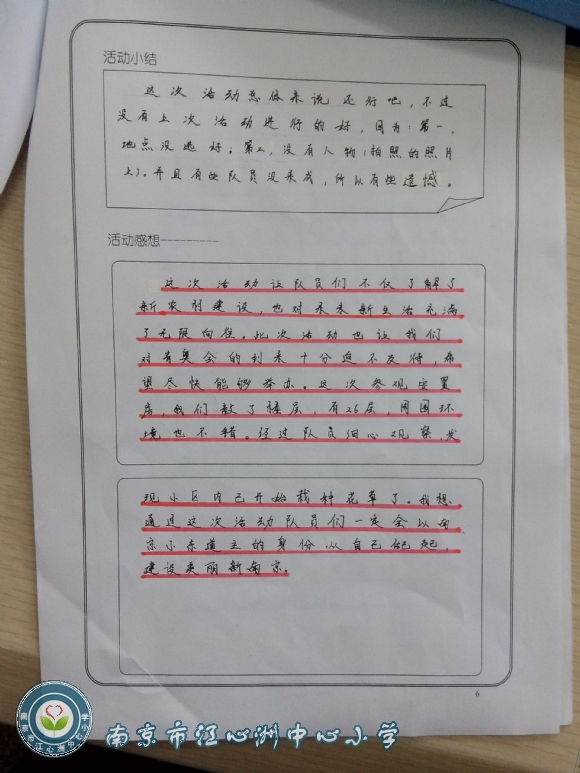 活动小结
这次活动总体来说还行吧，不过
没有上次活动进行的好，因为：第一，
地点没选好；第二，没有人物（拍照的照片
上）。并且有些队员没来成，所以有些遗憾。
活动感想---------
这次活动让队员们不仅了解了
新农村建设，也对未来新生活充满
了无限向往。此次活动也让我们
对青奥会的到来十分迫不及待，希
望尽快能够举办。这次参观安置
房，我们数了楼层，有26层，周围环
境也不错。经过队员细心观察，发
现小区内已开始栽种花草了。我想
通过这次活动队员们一定会以南
京小东道主的身份从自己做起，
建设美丽新南京。
6
南京市江心洲中心小学
南京市江心洲中心小学